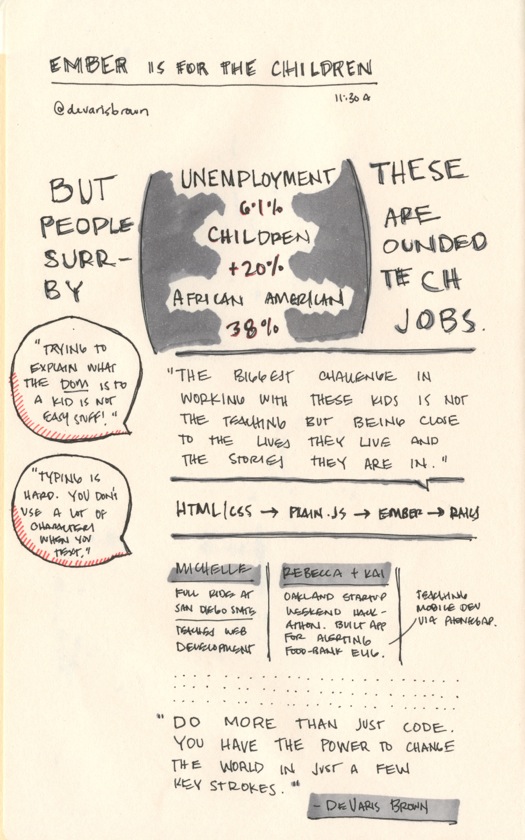 EMBER IS FOR THE CHILDREN
@devarisbrown
11:30 A
UNEMPLOYMENT
6.1%
CHILDREN
+20%
AFRICAN AMERICAN
38%
BUT THESE
PEOPLE ARE
SURR- OUNDED
BY TECH
JOBS.
"TRYING TO
EXPLAIN WHAT
THE DOM IS TO
A KID IS NOT
EASY STUFF!"
"TYPING IS
HARD. YOU DON'T
USE A LOT OF
CHARACTERS
WHEN YOU
TEXT."
"THE BIGGEST CHALLENGE IN
WORKING WITH THESE KIDS IS NOT
THE TEACHING BUT BEING CLOSE
TO THE LIVES THEY LIVE AND
THE STORIES THEY ARE IN."
HTML/CSS → PLAIN.JS → EMBER → RAILS
MICHELLE
FULL RIDE AT
SAN DIEGO STATE
TEACHES WEB
DEVELOPMENT
REBECCA + KAI
OAKLAND STARTUP
WEEKEND HACK-
ATHON. BUILT APP
FOR ALERTING
FOOD-BANK ELIG.
TEACHING
MOBILE DEV
VIA PHONEGAP.
"DO MORE THAN JUST CODE.
YOU HAVE THE POWER TO CHANGE
THE WORLD IN JUST A FEW
KEY STROKES."
- DEVARIS BROWN